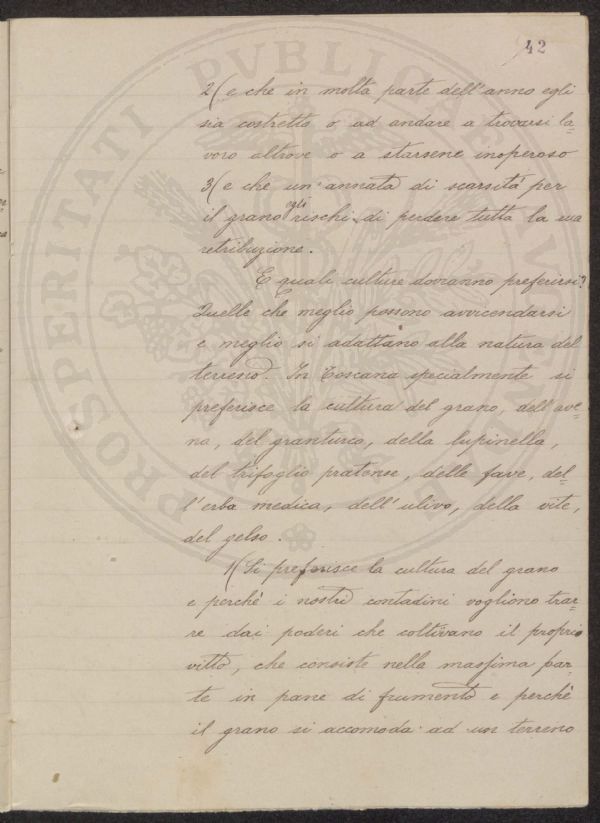 42
2( e che in molta parte dell'anno egli
sia costretto o ad andare a trovarsi la=
voro altrove o a starsene inoperoso
3( e che un'annata di scarsità per
il grano egli rischi di perdere tutta la sua
retribuzione.
E quali culture dovranno preferirsi?
Quelle che meglio possono avvicendarsi
e meglio si adattano alla natura del
terreno. In Toscana specialmente si
preferisce la cultura del grano, dell'ave=
na, del granturco, della lupinella,
del trifoglio pratense, delle fave, del=
l'erba medica, dell'ulivo, della vite,
del gelso.
1( Si preferisce la cultura del grano
e perchè i nostri contadini vogliono trar=
re dai poderi che coltivano il proprio
vitto, che consiste nella massima par=
te in pane di frumento e perchè
il grano si accomoda ad un terreno
PROSPERITATI PVBLICAE